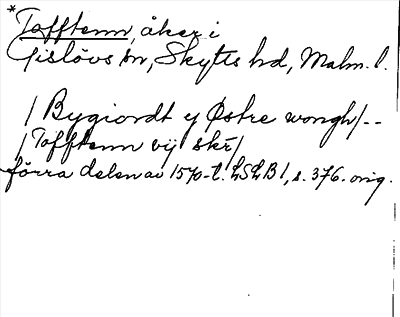 *Tofftenn, åker i
Gislövs sn, Skytts hd, Malm. l.
/ Bygiordt y Østre wongh/--
/ Tofftenn vij skr/
förra delen av 1570-t. LSLB1, s. 376. orig.